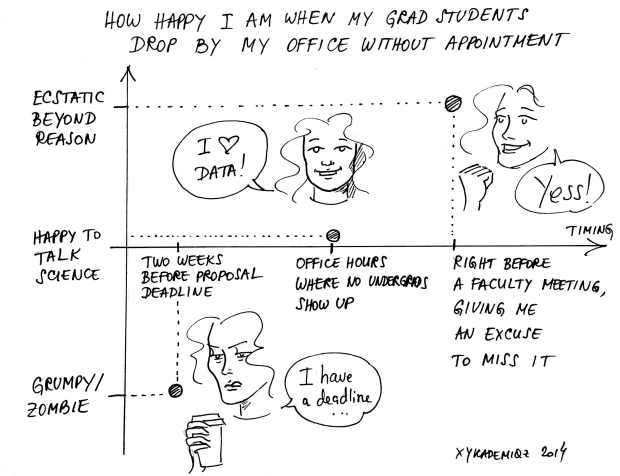 HOW HAPPY I AM WHEN MY GRAD STUDENTS
DROP BY MY OFFICE WITHOUT APPOINTMENT
ECSTATIC
BEYOND
REASON
I ♡
DATA!
Yess!
HAPPY TO
TALK
SCIENCE
TIMING
TWO WEEKS
BEFORE PROPOSAL
DEADLINE
OFFICE HOURS
WHERE NO UNDERGRADS
SHOW UP
RIGHT BEFORE
A FACULTY MEETING,
GIVING ME
AN EXCUSE
TO MISS IT
GRUMPY/
ZOMBIE
I have
a deadline
...
XYKADEMIQZ 2014